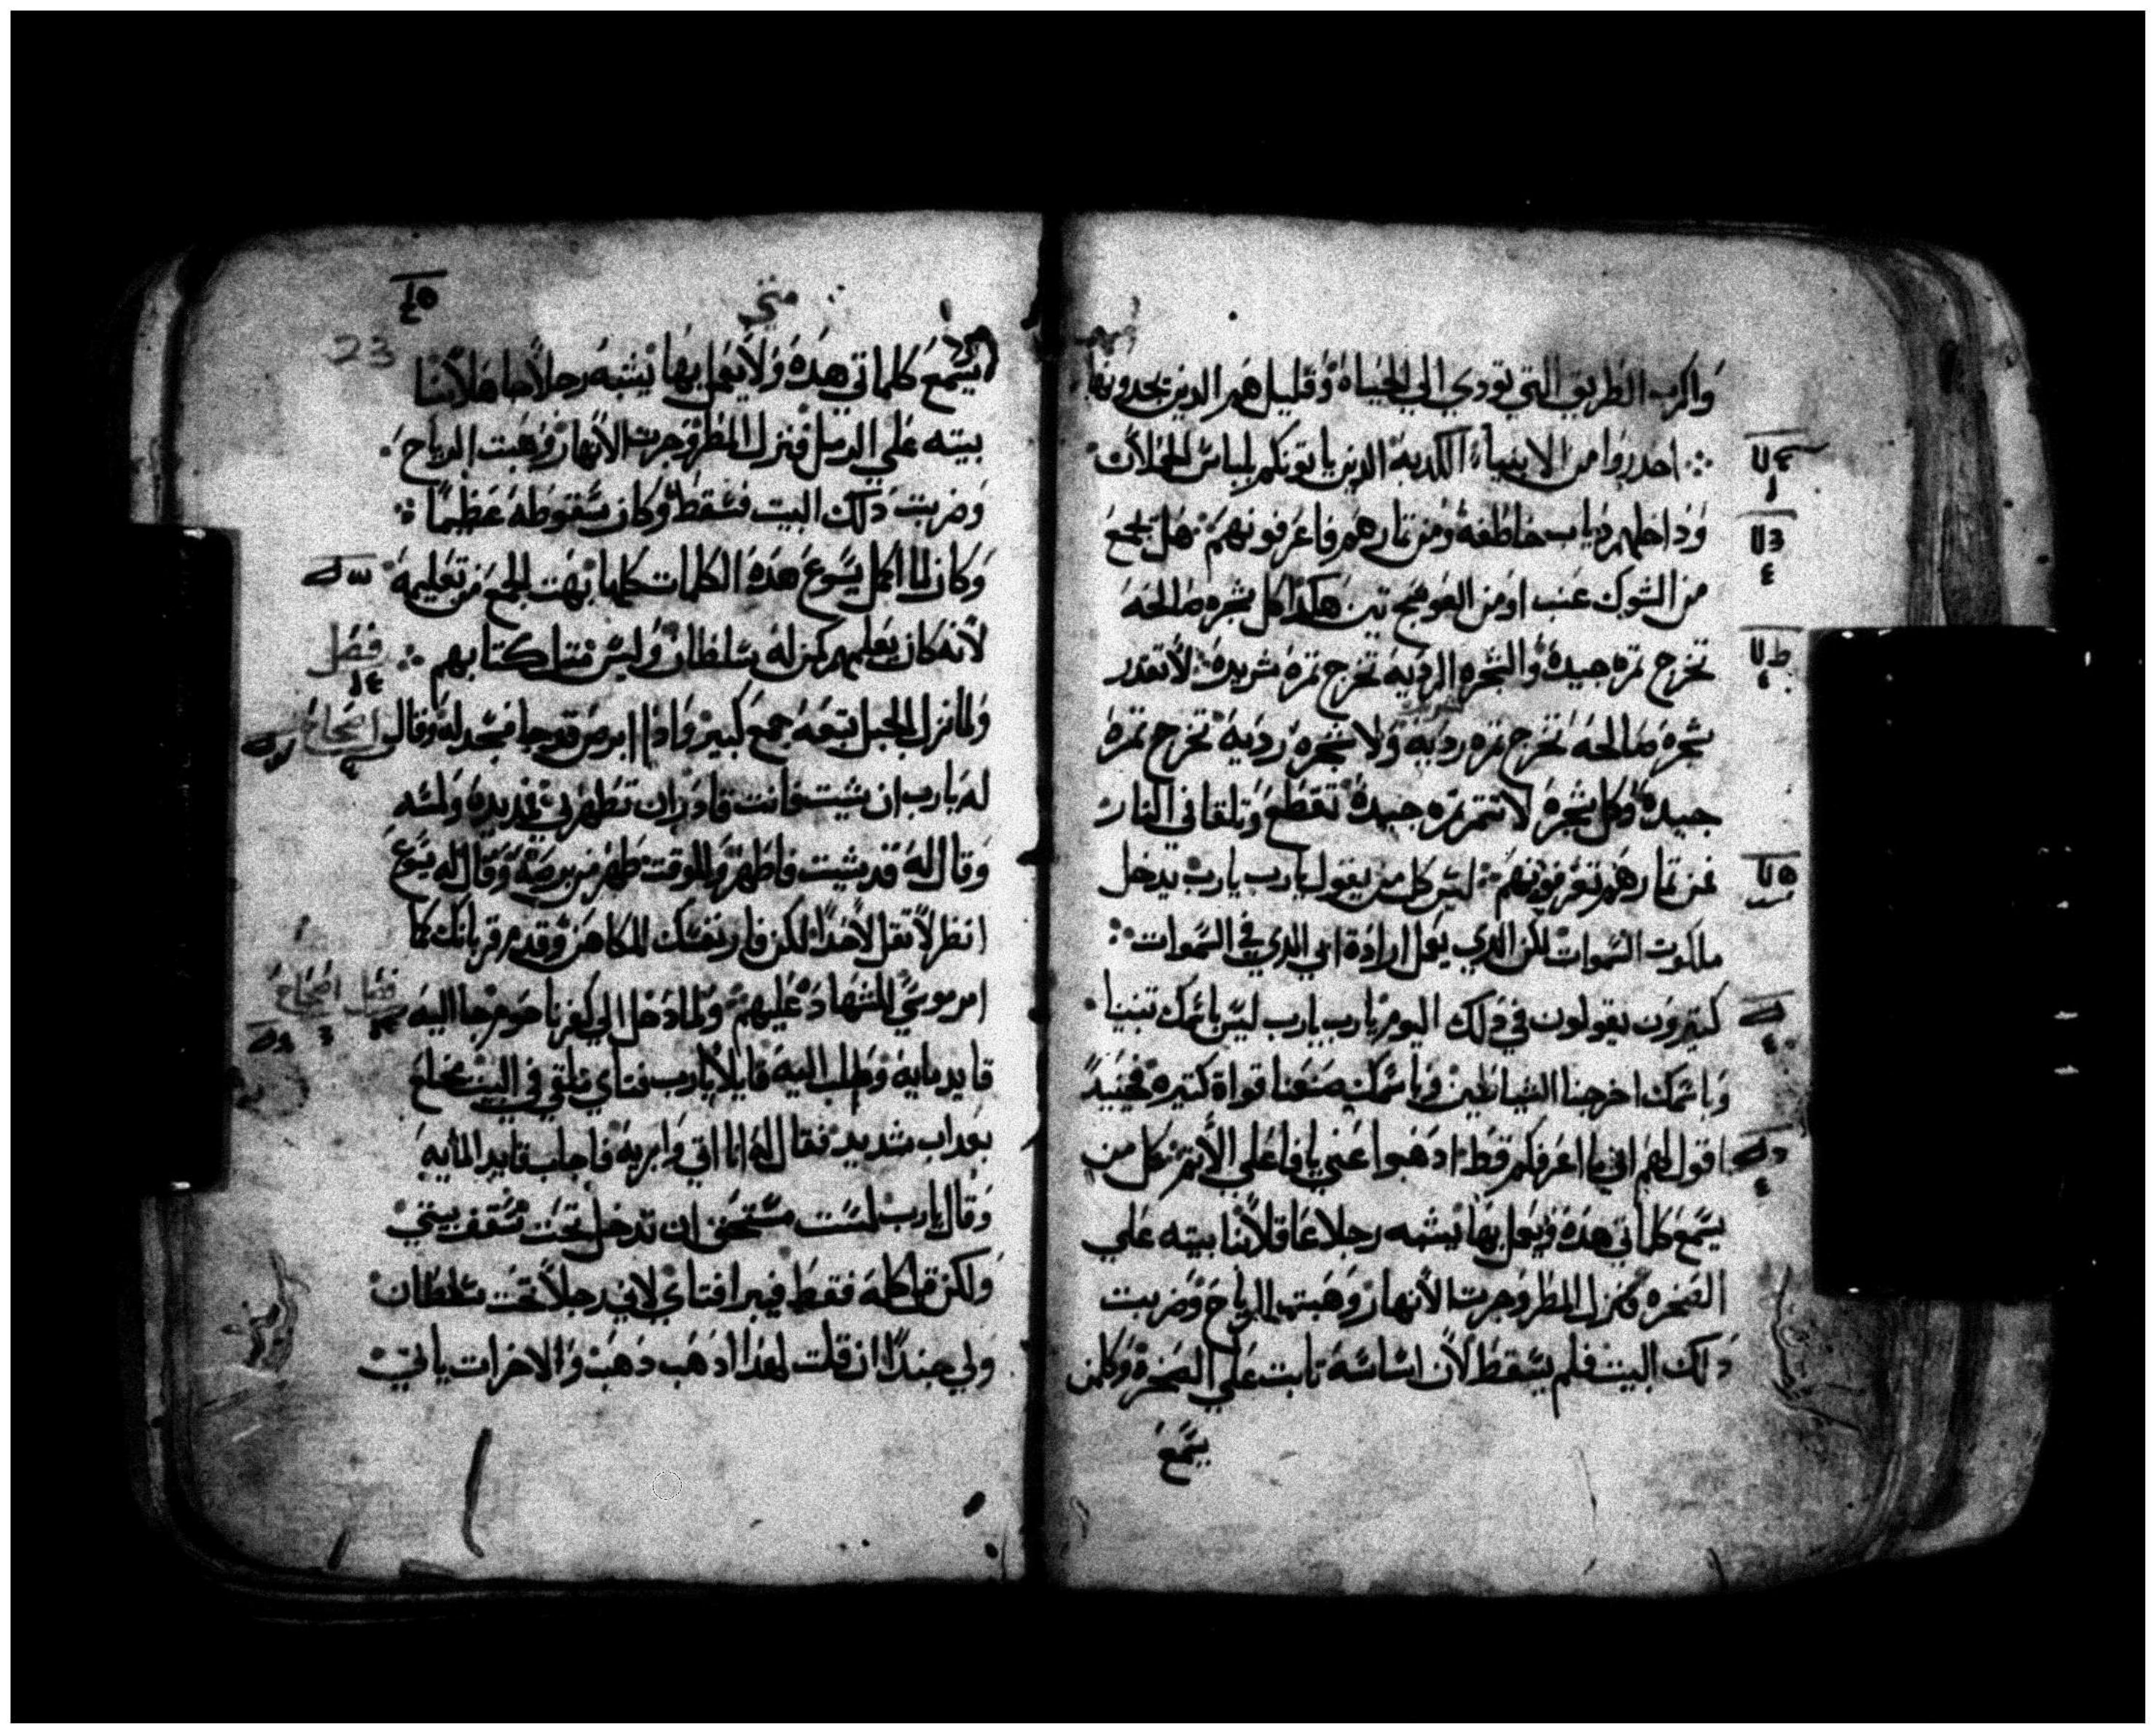 واكرب الطريق التي تودي الي الحياه وقليل هم الدين يجدونها
احدروا من الانبياء الكدبه الدين ياتونكم بلباس الحملان
وداخلهم دياب خاطفه ومن تمارهم فاعرفونهم هل يجمع
من الشوك عنب او من العوسج تين هكدا كل شجره صالحه
تخرج تمره جيده والشجره الرديه تخرج تمره شريره لا تقدر
شجره صالحه تخرج تمره رديه ولا شجره رديه تخرج تمره
جيده وكل شجره لا تتمر تمره جيده تقطع وتلقا في النار
فمن تمارهم تعرفونهم ليس كل من يقول يارب يارب يدخل
ملكوت السموات لكن الدي يعمل ارادة ابي الدي في السموات
كتيرون يقولون في دلك اليوم يارب يارب ليس باسمك تنبينا
وباسمك اخرجنا الشياطين وباسمك صنعنا قواة كتيره فحينيدً
اقول لهم اني ما اعرفكم قط ادهبوا عني يا فاعلي الاتم كل من
يسمع كلماتي هده ويعمل بها يشبه رجلا عاقلا بنا بيته علي
الصخره فنزل المطر وجرت الانهار وهبت الرياح وضربت
دلك البيت فلم يسقط لان اساسه تابت علي الصخره وكلمن
يسمع
متي
23
يسمع كلماتي هده ولا يعمل بها يشبه رجلا جاهلا بنا
بيته علي الرمل فنزل المطر وجرت الانهار وهبت الرياح
وضربت دلك البيت فسقط وكان سقوطه عظيمًا
وكان لما اكمل يسوع هده الكلمات كلها بهت الجمع من تعليمه
لانه كان يعلمهم كمن له سلطان وليس متل كتابهم
فصل
ولما نزل الجبل تبعه جمع كبير وادا ابرص قد جا فسجد له وقال
اصحاح
له يارب ان شيت فانت قادر ان تطهرني فمد يده ولمسه
وقال له قد شيت فاطهر وللوقت طهر من برصه وقال له يسوع
انظر لا تقل لاحدًا لكن فار نفسك للكاهن وقدم قربانك كما
امر موسي للشهادة عليهم ولما دخل الي كفرناحوم جا اليه
فصل اصحاح
قايد مايه وطلب اليه قايلا يارب فتاي ملقي في البيت مخلع
بعداب شديد فقال له انا اتي وابريه فاجاب قايد المايه
وقال يارب لست مستحق ان تدخل تحت سقف بيتي
ولكن قل كلمه فقط فيبرا فتاي لاني رجلا تحت سلطان
ولي جندًا ان قلت لهدا ادهب دهب والاخر ات ياتي